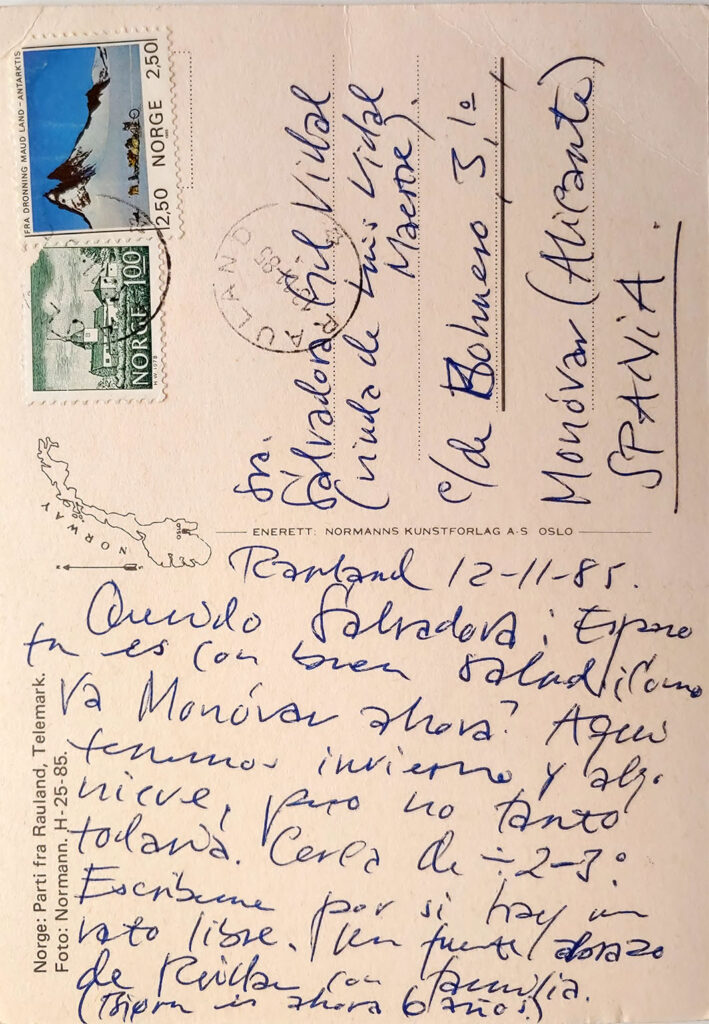 Norge: Parti fra Rauland, Telemark.
Foto: Normann. H-25-85.
NORWAY
OSLO
ENERETT: NORMANNS KUNSTFORLAG A·S OSLO
FRA DRONNING MAUD LAND - ANTARKTIS
2,50 NORGE 2,50
NORGE 100
RAULAND
85
Rauland 12-11-85.
Querido Salvadora: Espero
tu es con buen salud ¿Como
va Monóvar ahora? Aqui
tenemos invierno y algo
nieve, pero no tanto
todavia. Cerca de ÷2-3°
Escribeme por si hay un
rato libre. Un fuerte abrazo
de con familia.
(Bjørn es ahora 6 años.)
Sra.
Salvadora Vidal
(viuda de Luis Vidal
Maestre),
c/de 3, 1º
Monóvar (Alicante)
SPANIA.